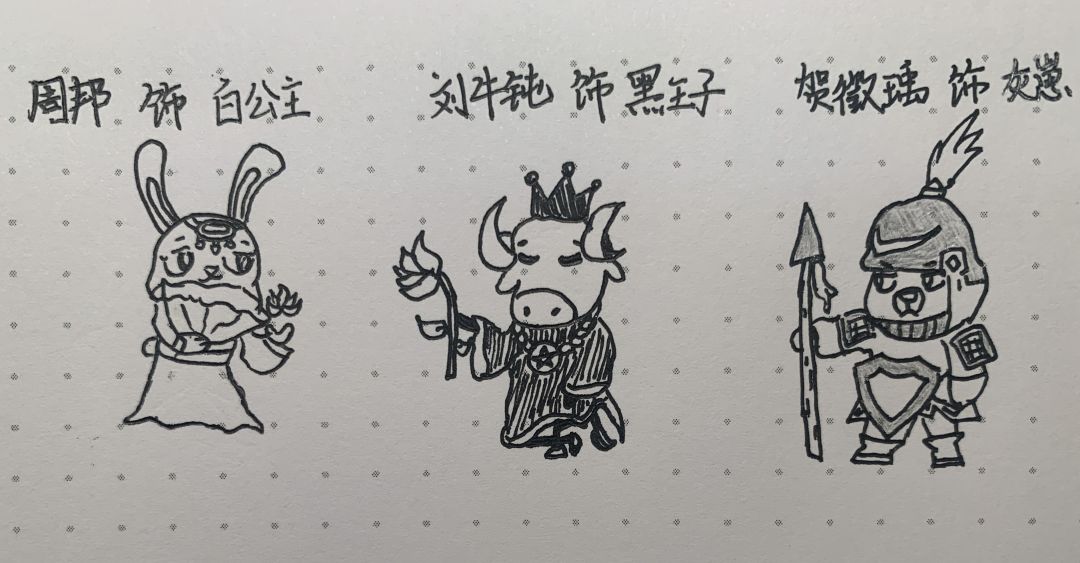 周邦 饰 白公主 刘牛钝 饰 黑王子 贺徵瑀 饰 灰